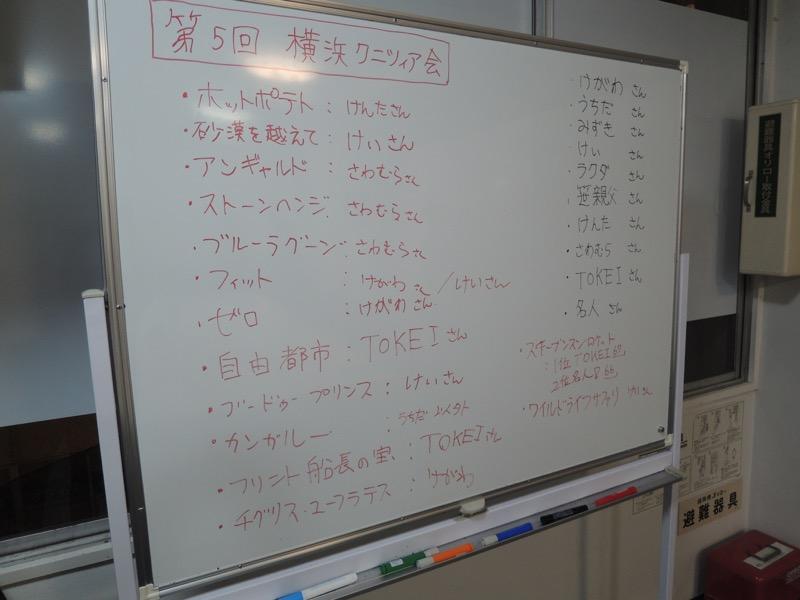 第5回 横浜クニツィア会
・ホットポテト : けんたさん
・砂漠を越えて : けいさん
・アンギャルド : さわむらさん
・ストーンヘンジ : さわむらさん
・ブルーラグーン : さわむらさん
・フィット : けがわさん/けいさん
・ゼロ : けがわさん
・自由都市 : TOKEIさん
・ブードゥープリンス : けいさん
・カンガルー : うちだ
・フリント船長の宝 : TOKEIさん
・チグリス・ユーフラテス : けがわ
・けがわ さん
・うちだ さん
・みずき さん
・けい さん
・ラクダ さん
・笹親父 さん
・けんた さん
・さわむら さん
・TOKEI さん
・名人 さん
:1位 TOKEI
2位 名人 66
・ワイルドライフサファリ けいさん
避難器具オリロー取付金具
避難器具